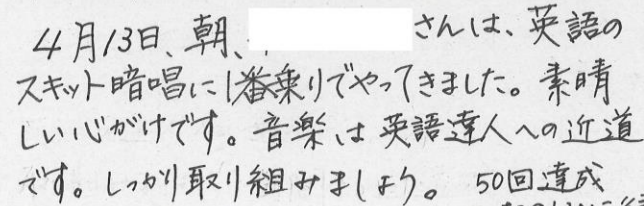 4月13日、朝、 さんは、英語の
スキット暗唱に1番乗りでやってきました。素晴
しい心がけです。音楽は英語達人への近道
です。しっかり取り組みましょう。 50回達成